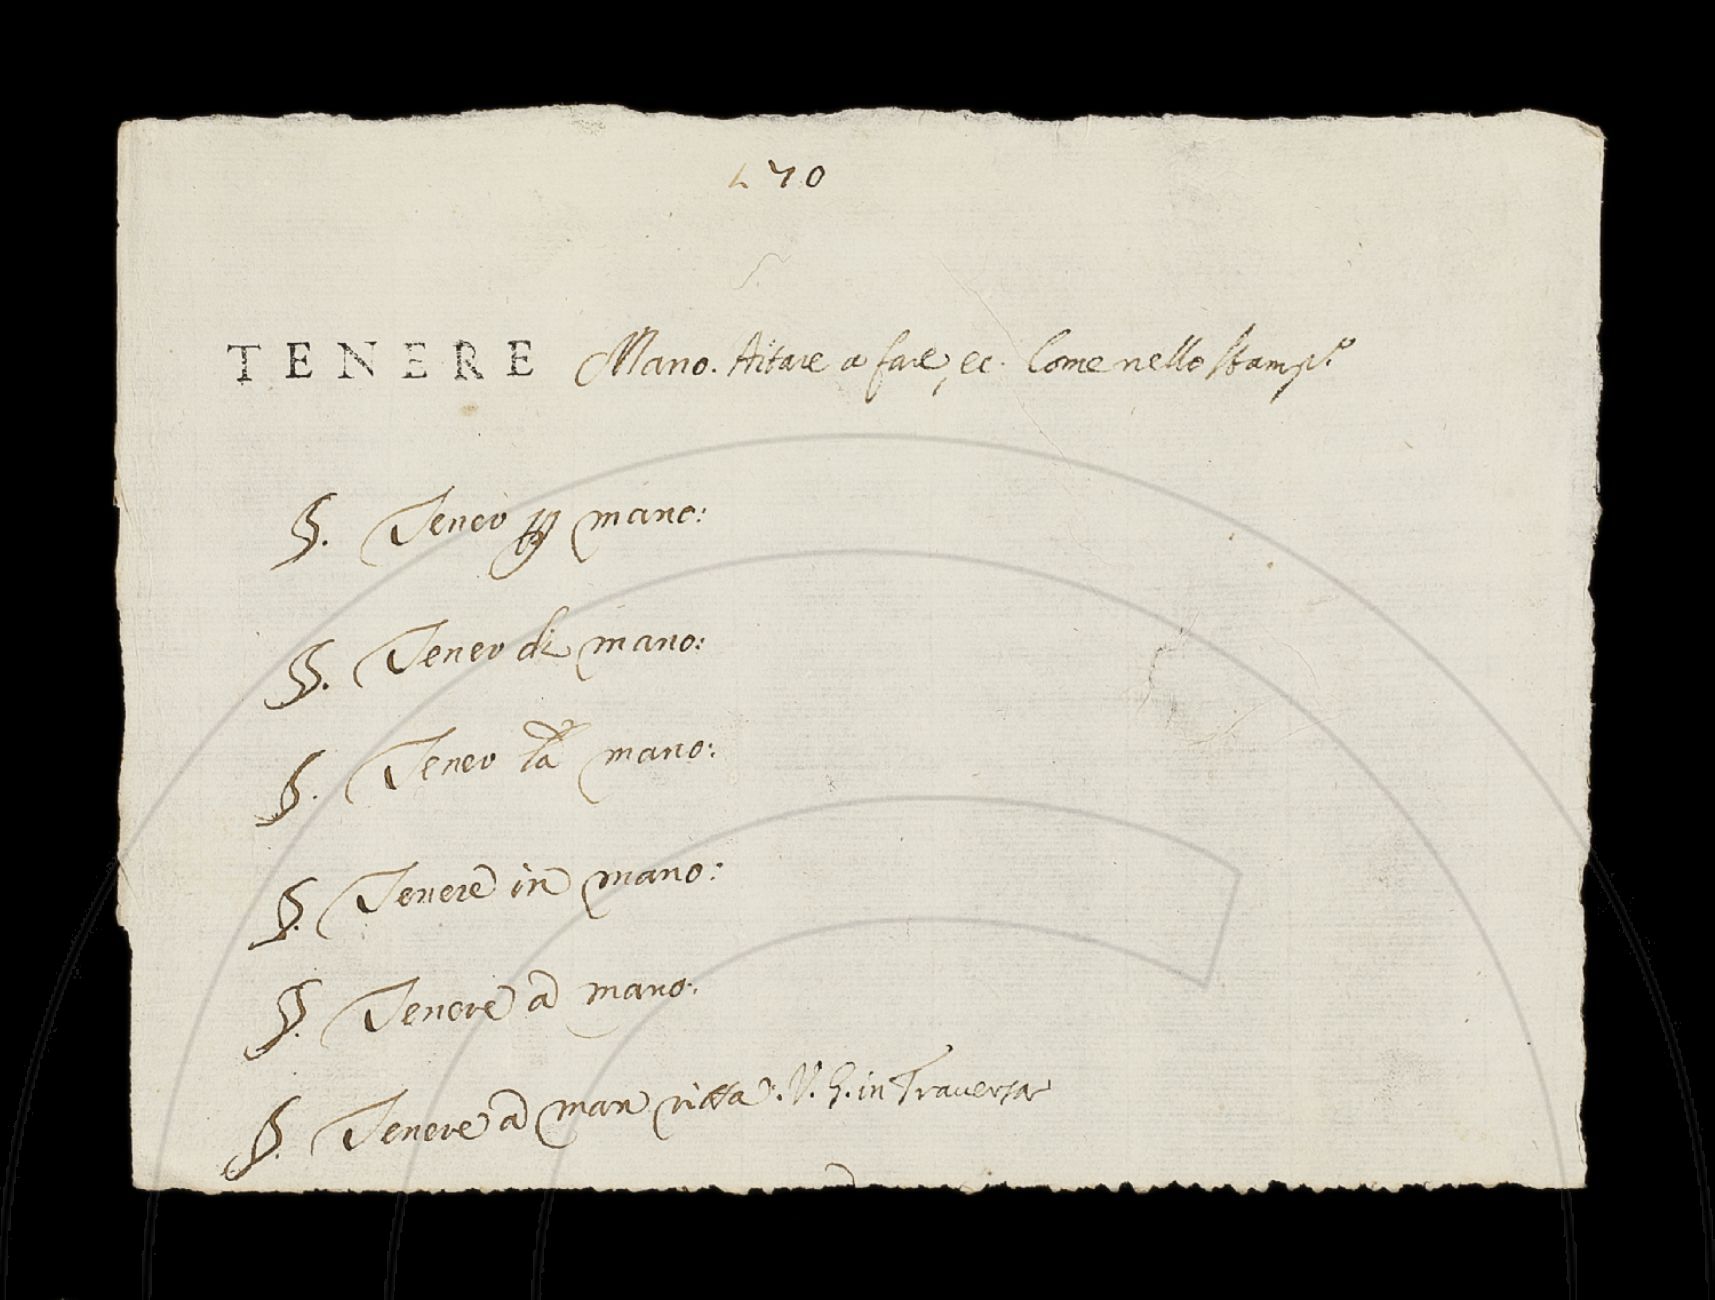 70
TENERE Mano. Aitare a fare, ec. Come nello Stamp.º
§. Tener ꝑ mano:
§. Tener di mano:
§. Tener la mano:
§. Tenere in mano:
§. Tenere a mano:
§. Tenere a man ritta: V. §. in Traversa